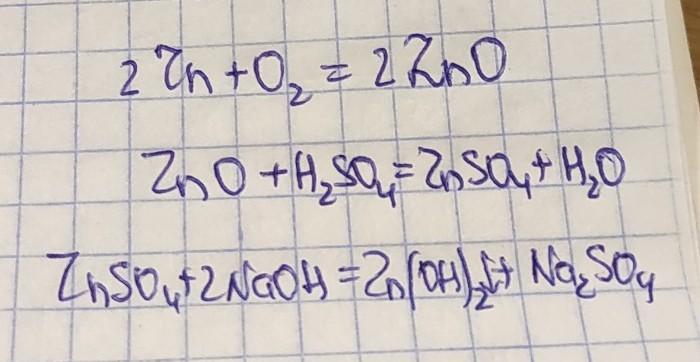 2Zn + O₂ = 2ZnO
ZnO + H₂SO₄ = ZnSO₄ + H₂O
ZnSO₄ + 2NaOH = Zn(OH)₂↓ + Na₂SO₄